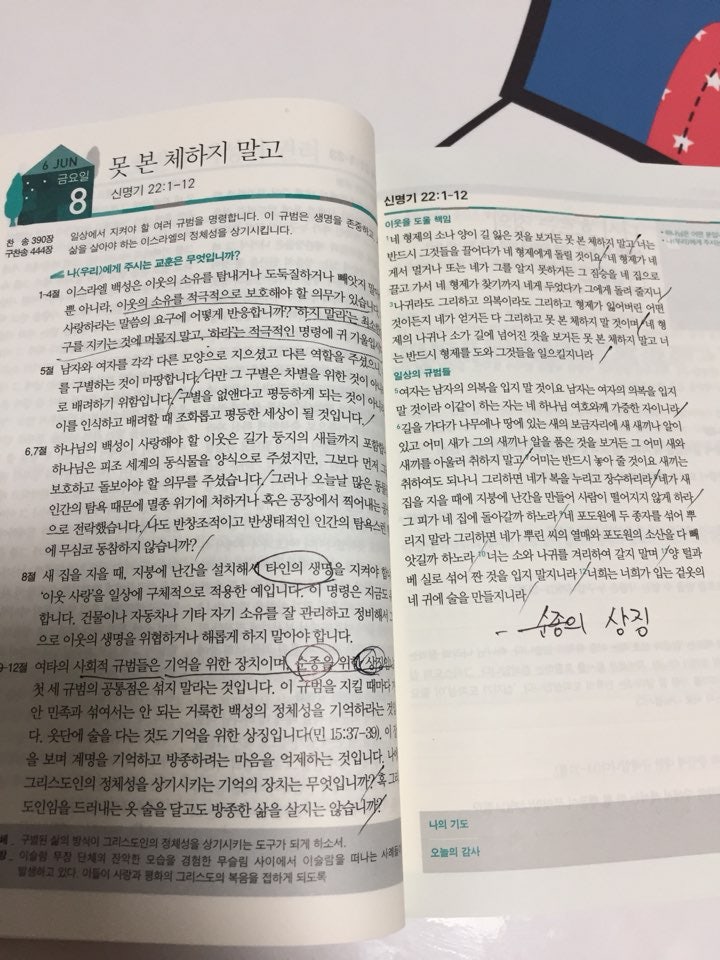 6 JUN
금요일
8
못 본 체하지 말고
신명기 22:1-12
찬 송 390장
구찬송 444장
일상에서 지켜야 할 여러 규범을 명령합니다. 이 규범은 생명을 존중하고
삶을 살아야 하는 이스라엘의 정체성을 상기시킵니다.
나(우리)에게 주시는 교훈은 무엇입니까?
1-4절 이스라엘 백성은 이웃의 소유를 탐내거나 도둑질하거나 빼앗지 말
뿐 아니라, 이웃의 소유를 적극적으로 보호해야 할 의무가 있습니다
사랑하라는 말씀의 요구에 어떻게 반응합니까? '하지 말라'는 최소한
구를 지키는 것에 머물지 말고, '하라'는 적극적인 명령에 귀 기울입시
5절 남자와 여자를 각각 다른 모양으로 지으셨고 다른 역할을 주셨으니
를 구별하는 것이 마땅합니다. 다만 그 구별은 차별을 위한 것이 아니
로 배려하기 위함입니다. 구별을 없앤다고 평등하게 되는 것이 아니
이를 인식하고 배려할 때 조화롭고 평등한 세상이 될 것입니다.
6,7절 하나님의 백성이 사랑해야 할 이웃은 길가 둥지의 새들까지 포함합
하나님은 피조 세계의 동식물을 양식으로 주셨지만, 그보다 먼저 그
보호하고 돌보아야 할 의무를 주셨습니다. 그러나 오늘날 많은 동물
인간의 탐욕 때문에 멸종 위기에 처하거나 혹은 공장에서 찍어내는 공
으로 전락했습니다. 나도 반창조적이고 반생태적인 인간의 탐욕스런
에 무심코 동참하지 않습니까?
8절 새 집을 지을 때, 지붕에 난간을 설치해서 타인의 생명을 지켜야 합
'이웃 사랑'을 일상에 구체적으로 적용한 예입니다. 이 명령은 지금도
합니다. 건물이나 자동차나 기타 자기 소유를 잘 관리하고 정비해서 그
으로 이웃의 생명을 위협하거나 해롭게 하지 말아야 합니다.
9-12절 여타의 사회적 규범들은 기억을 위한 장치이며, 순종을 위한 상징입니
첫 세 규범의 공통점은 섞지 말라는 것입니다. 이 규범을 지킬 때마다
안 민족과 섞여서는 안 되는 거룩한 백성의 정체성을 기억하라는 것
다. 옷단에 술을 다는 것도 기억을 위한 상징입니다(민 15:37-39). 이
을 보며 계명을 기억하고 방종하려는 마음을 억제하는 것입니다. 나에
그리스도인의 정체성을 상기시키는 기억의 장치는 무엇입니까? 혹 그리
도인임을 드러내는 옷 술을 달고도 방종한 삶을 살지는 않습니까?
구별된 삶의 방식이 그리스도인의 정체성을 상기시키는 도구가 되게 하소서.
이슬람 무장 단체의 잔악한 모습을 경험한 무슬림 사이에서 이슬람을 떠나는 사례들
발생하고 있다. 이들이 사랑과 평화의 그리스도의 복음을 접하게 되도록
신명기 22:1-12
이웃을 도울 책임
1네 형제의 소나 양이 길 잃은 것을 보거든 못 본 체하지 말고 너는
반드시 그것들을 끌어다가 네 형제에게 돌릴 것이요 2네 형제가 네
게서 멀거나 또는 네가 그를 알지 못하거든 그 짐승을 네 집으로
끌고 가서 네 형제가 찾기까지 네게 두었다가 그에게 돌려 줄지니
3나귀라도 그리하고 의복이라도 그리하고 형제가 잃어버린 어떤
것이든지 네가 얻거든 다 그리하고 못 본 체하지 말 것이며 4네 형
제의 나귀나 소가 길에 넘어진 것을 보거든 못 본 체하지 말고 너
는 반드시 형제를 도와 그것들을 일으킬지니라
일상의 규범들
5여자는 남자의 의복을 입지 말 것이요 남자는 여자의 의복을 입지
말 것이라 이같이 하는 자는 네 하나님 여호와께 가증한 자이니라
6길을 가다가 나무에나 땅에 있는 새의 보금자리에 새 새끼나 알이
있고 어미 새가 그의 새끼나 알을 품은 것을 보거든 그 어미 새와
새끼를 아울러 취하지 말고 7어미는 반드시 놓아 줄 것이요 새끼는
취하여도 되나니 그리하면 네가 복을 누리고 장수하리라 8네가 새
집을 지을 때에 지붕에 난간을 만들어 사람이 떨어지지 않게 하라
그 피가 네 집에 돌아갈까 하노라 9네 포도원에 두 종자를 섞어 뿌
리지 말라 그리하면 네가 뿌린 씨의 열매와 포도원의 소산을 다 빼
앗길까 하노라 10너는 소와 나귀를 겨리하여 갈지 말며 11양 털과
베 실로 섞어 짠 것을 입지 말지니라 12너희는 너희가 입는 겉옷의
네 귀에 술을 만들지니라
- 순종의 상징
하나님은 어떤 분입
나(우리)에게 주시는
나의 기도
오늘의 감사